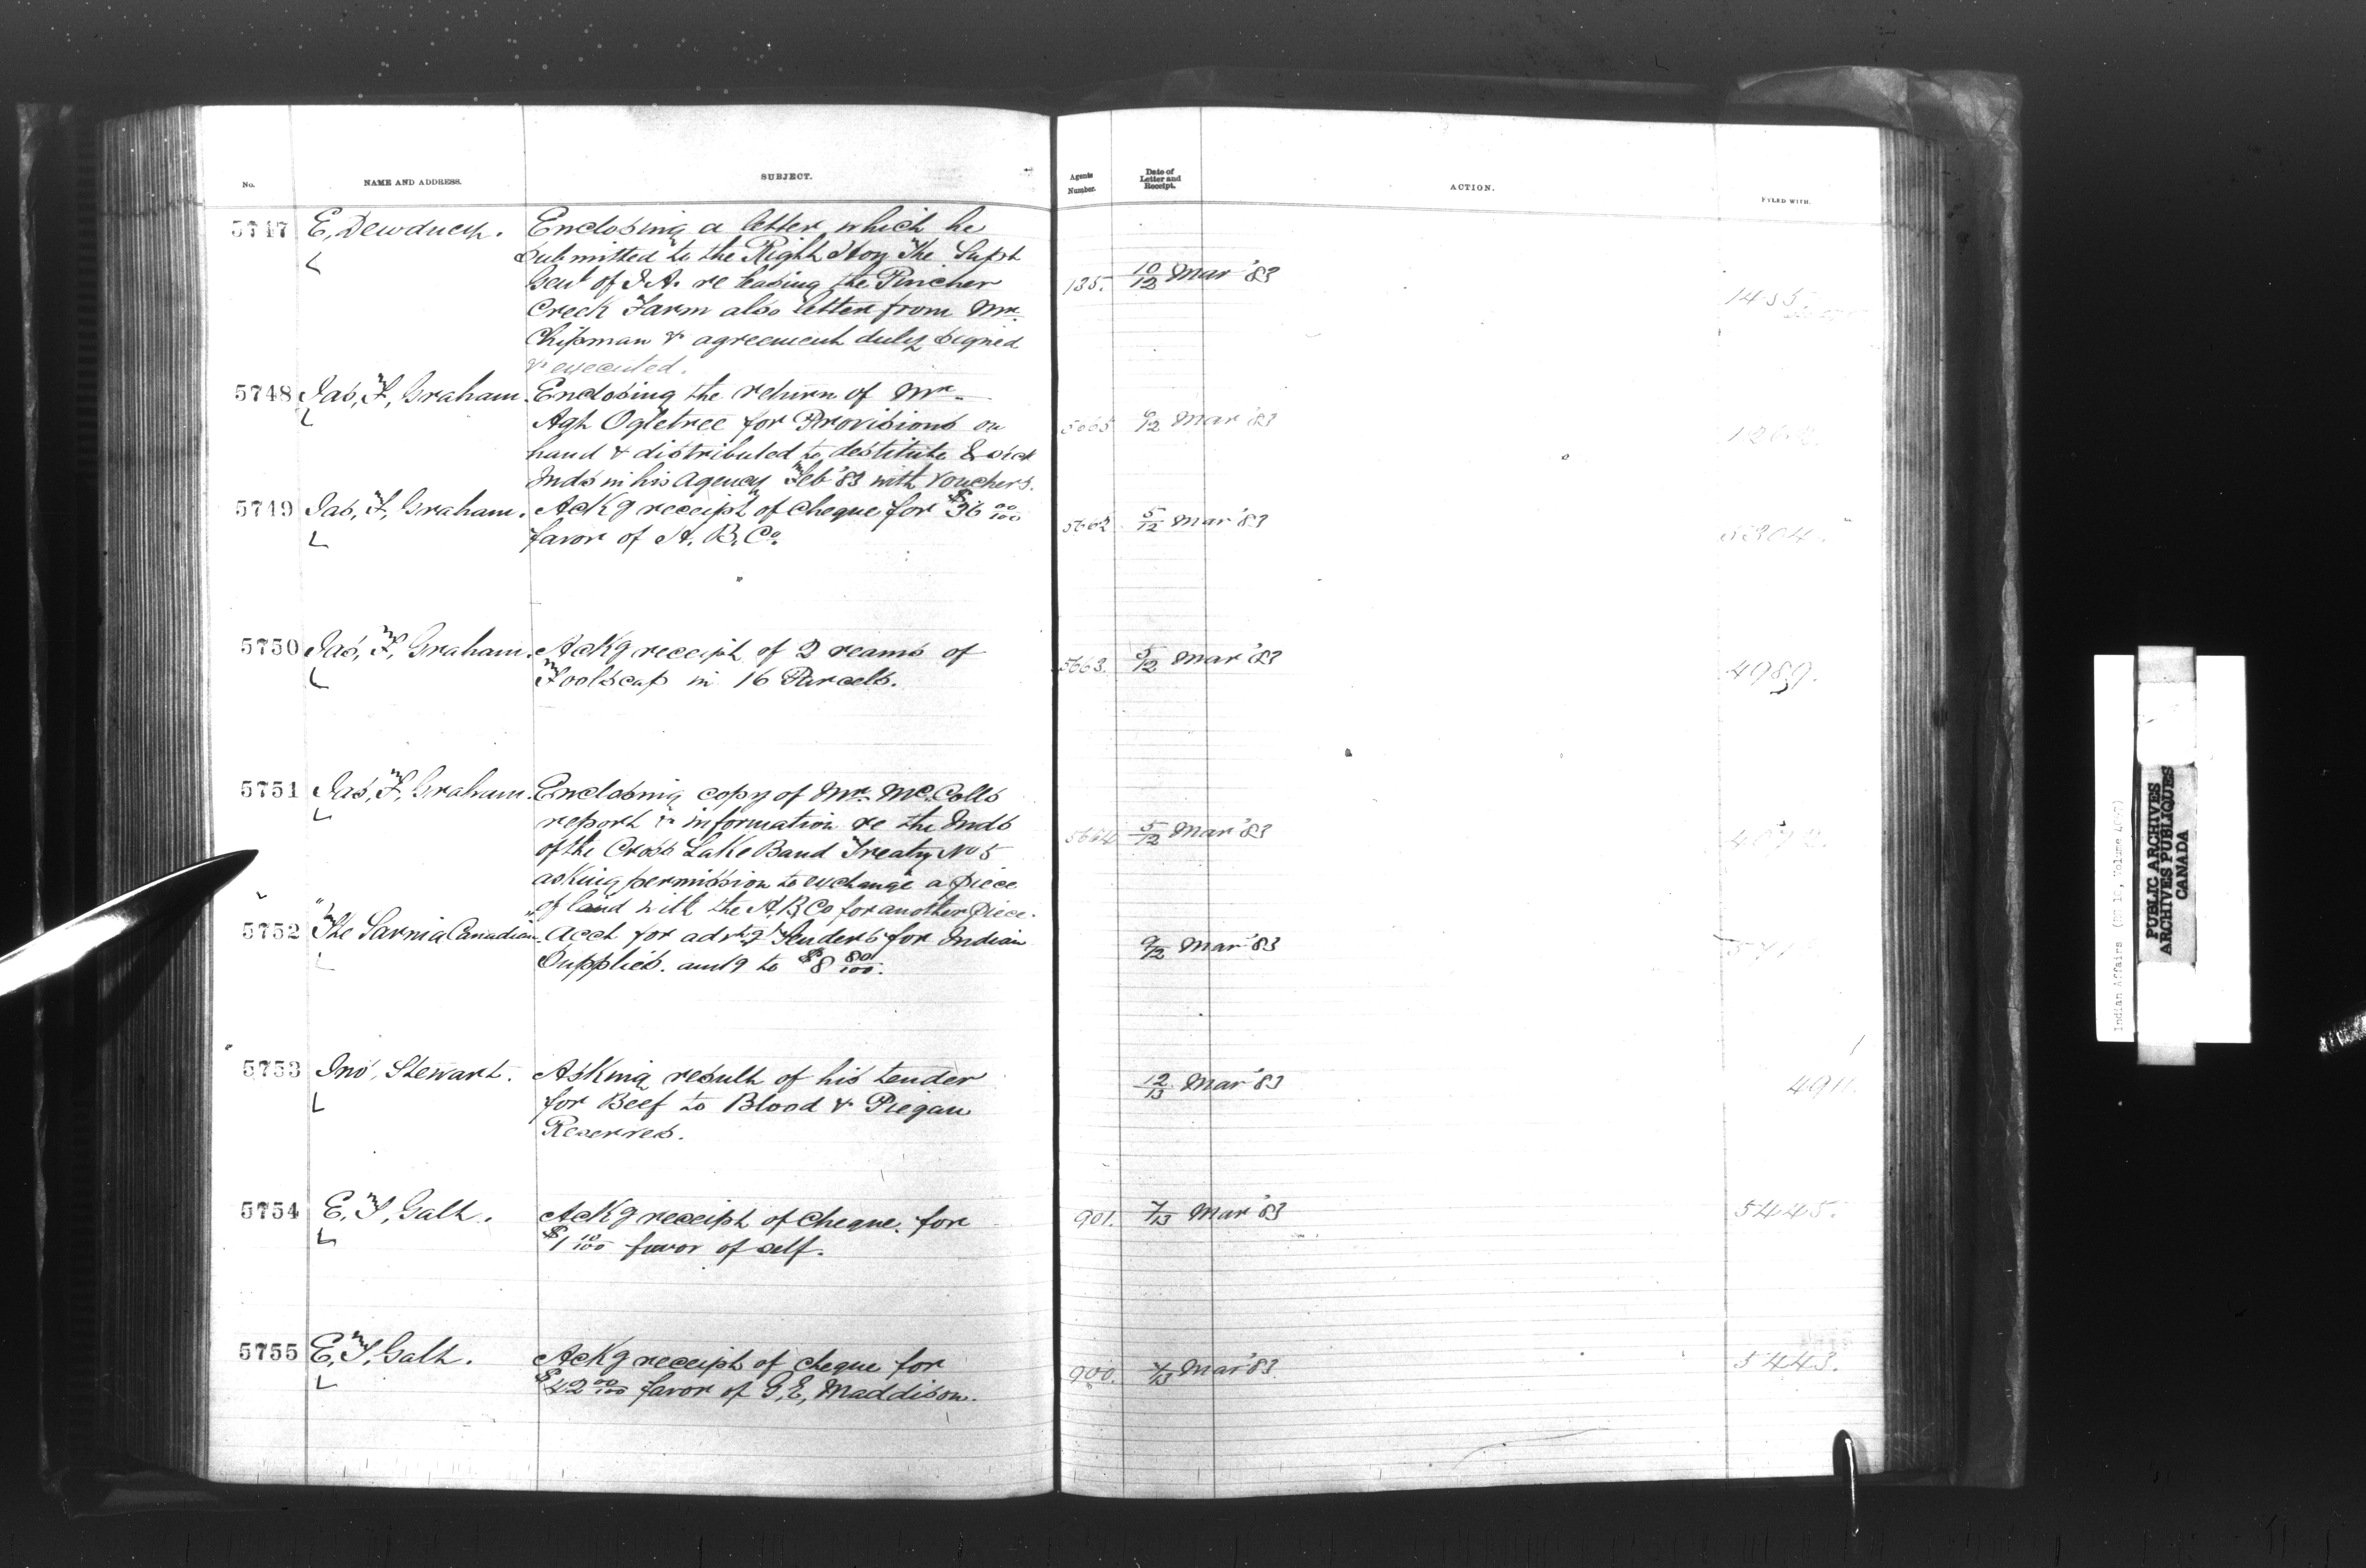 No. NAME AND ADDRESS. SUBJECT. Agents Number. Date of Letter and Receipt. ACTION. FYLED WITH.
5747 E, Dewdney. Enclosing a letter which he
submitted to the Right Hon The Supt
Genl of I.A. re leasing the Pincher 135. 10/12 Mar '83
Creek Farm also letter from Mr. 1435.
Chipman & agreement duly signed
& executed.
5748 Jas, F, Graham. Enclosing the return of Mr.
Agt Ogletree for Provisions on 5665 6/12 Mar '83
hand & distributed to destitute & sick
Inds in his Agency Feb '83 with vouchers.
5749 Jas, F, Graham. Ackg receipt of Cheque for $36 00/100 5662 5/12 Mar '83
favor of H. B. Co. 5304.
5750 Jas, F, Graham. Ackg receipt of 2 reams of 5663. 5/12 Mar '83
Foolscap in 16 Parcels. 4989.
5751 Jas, F, Graham. Enclosing copy of Mr. McColls
report & information re the Inds 5664 5/12 Mar '83
of the Cross Lake Band Treaty No 5
asking permission to exchange a piece
of land with the H, B, Co for another piece.
5752 "The Sarnia Canadian" Acct for advtg Tenders for Indian 9/12 Mar '83
Supplies. amtg to $8 80/100.
5753 Jno, Stewart. Asking result of his tender 12/13 Mar '83 4911.
for Beef to Blood & Piegan
Reserves.
5754 E, T, Galt. Ackg receipt of Cheque. for 901. 7/13 Mar '83 5445.
$1 10/100 favor of self.
5755 E, T, Galt. Ackg receipt of cheque for 900. 7/13 Mar '83 5443.
$42 00/100 favor of G, E, Maddison.
PUBLIC ARCHIVES
ARCHIVES PUBLIQUES
CANADA